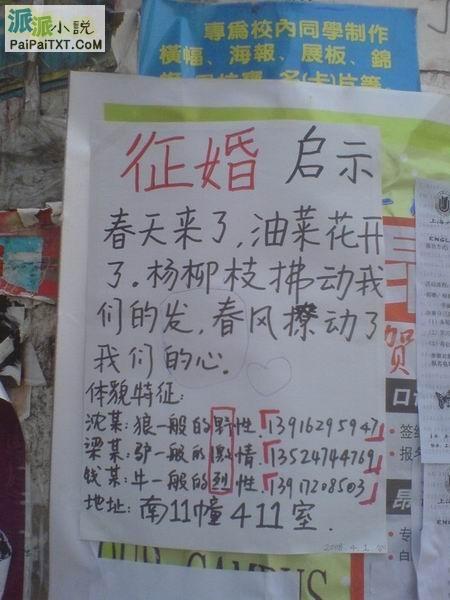 派派小説
PaiPaiTXT.com
專為校內同學制作
橫幅、海報、展板、錦
征婚 启示
春天来了,油菜花开
了。杨柳枝拂动我
们的发,春风撩动了
我们的心。
体貌特征:
沈某:狼一般的野性.「13916295947」
梁某:驴一般的激情.「13524744769」
钱某:牛一般的烈性.「13917208503」
地址:南11幢411室.
2008.4.1
贺
口
签
报名
昂
专
白
上海
ENGL
OUR CAMPUS